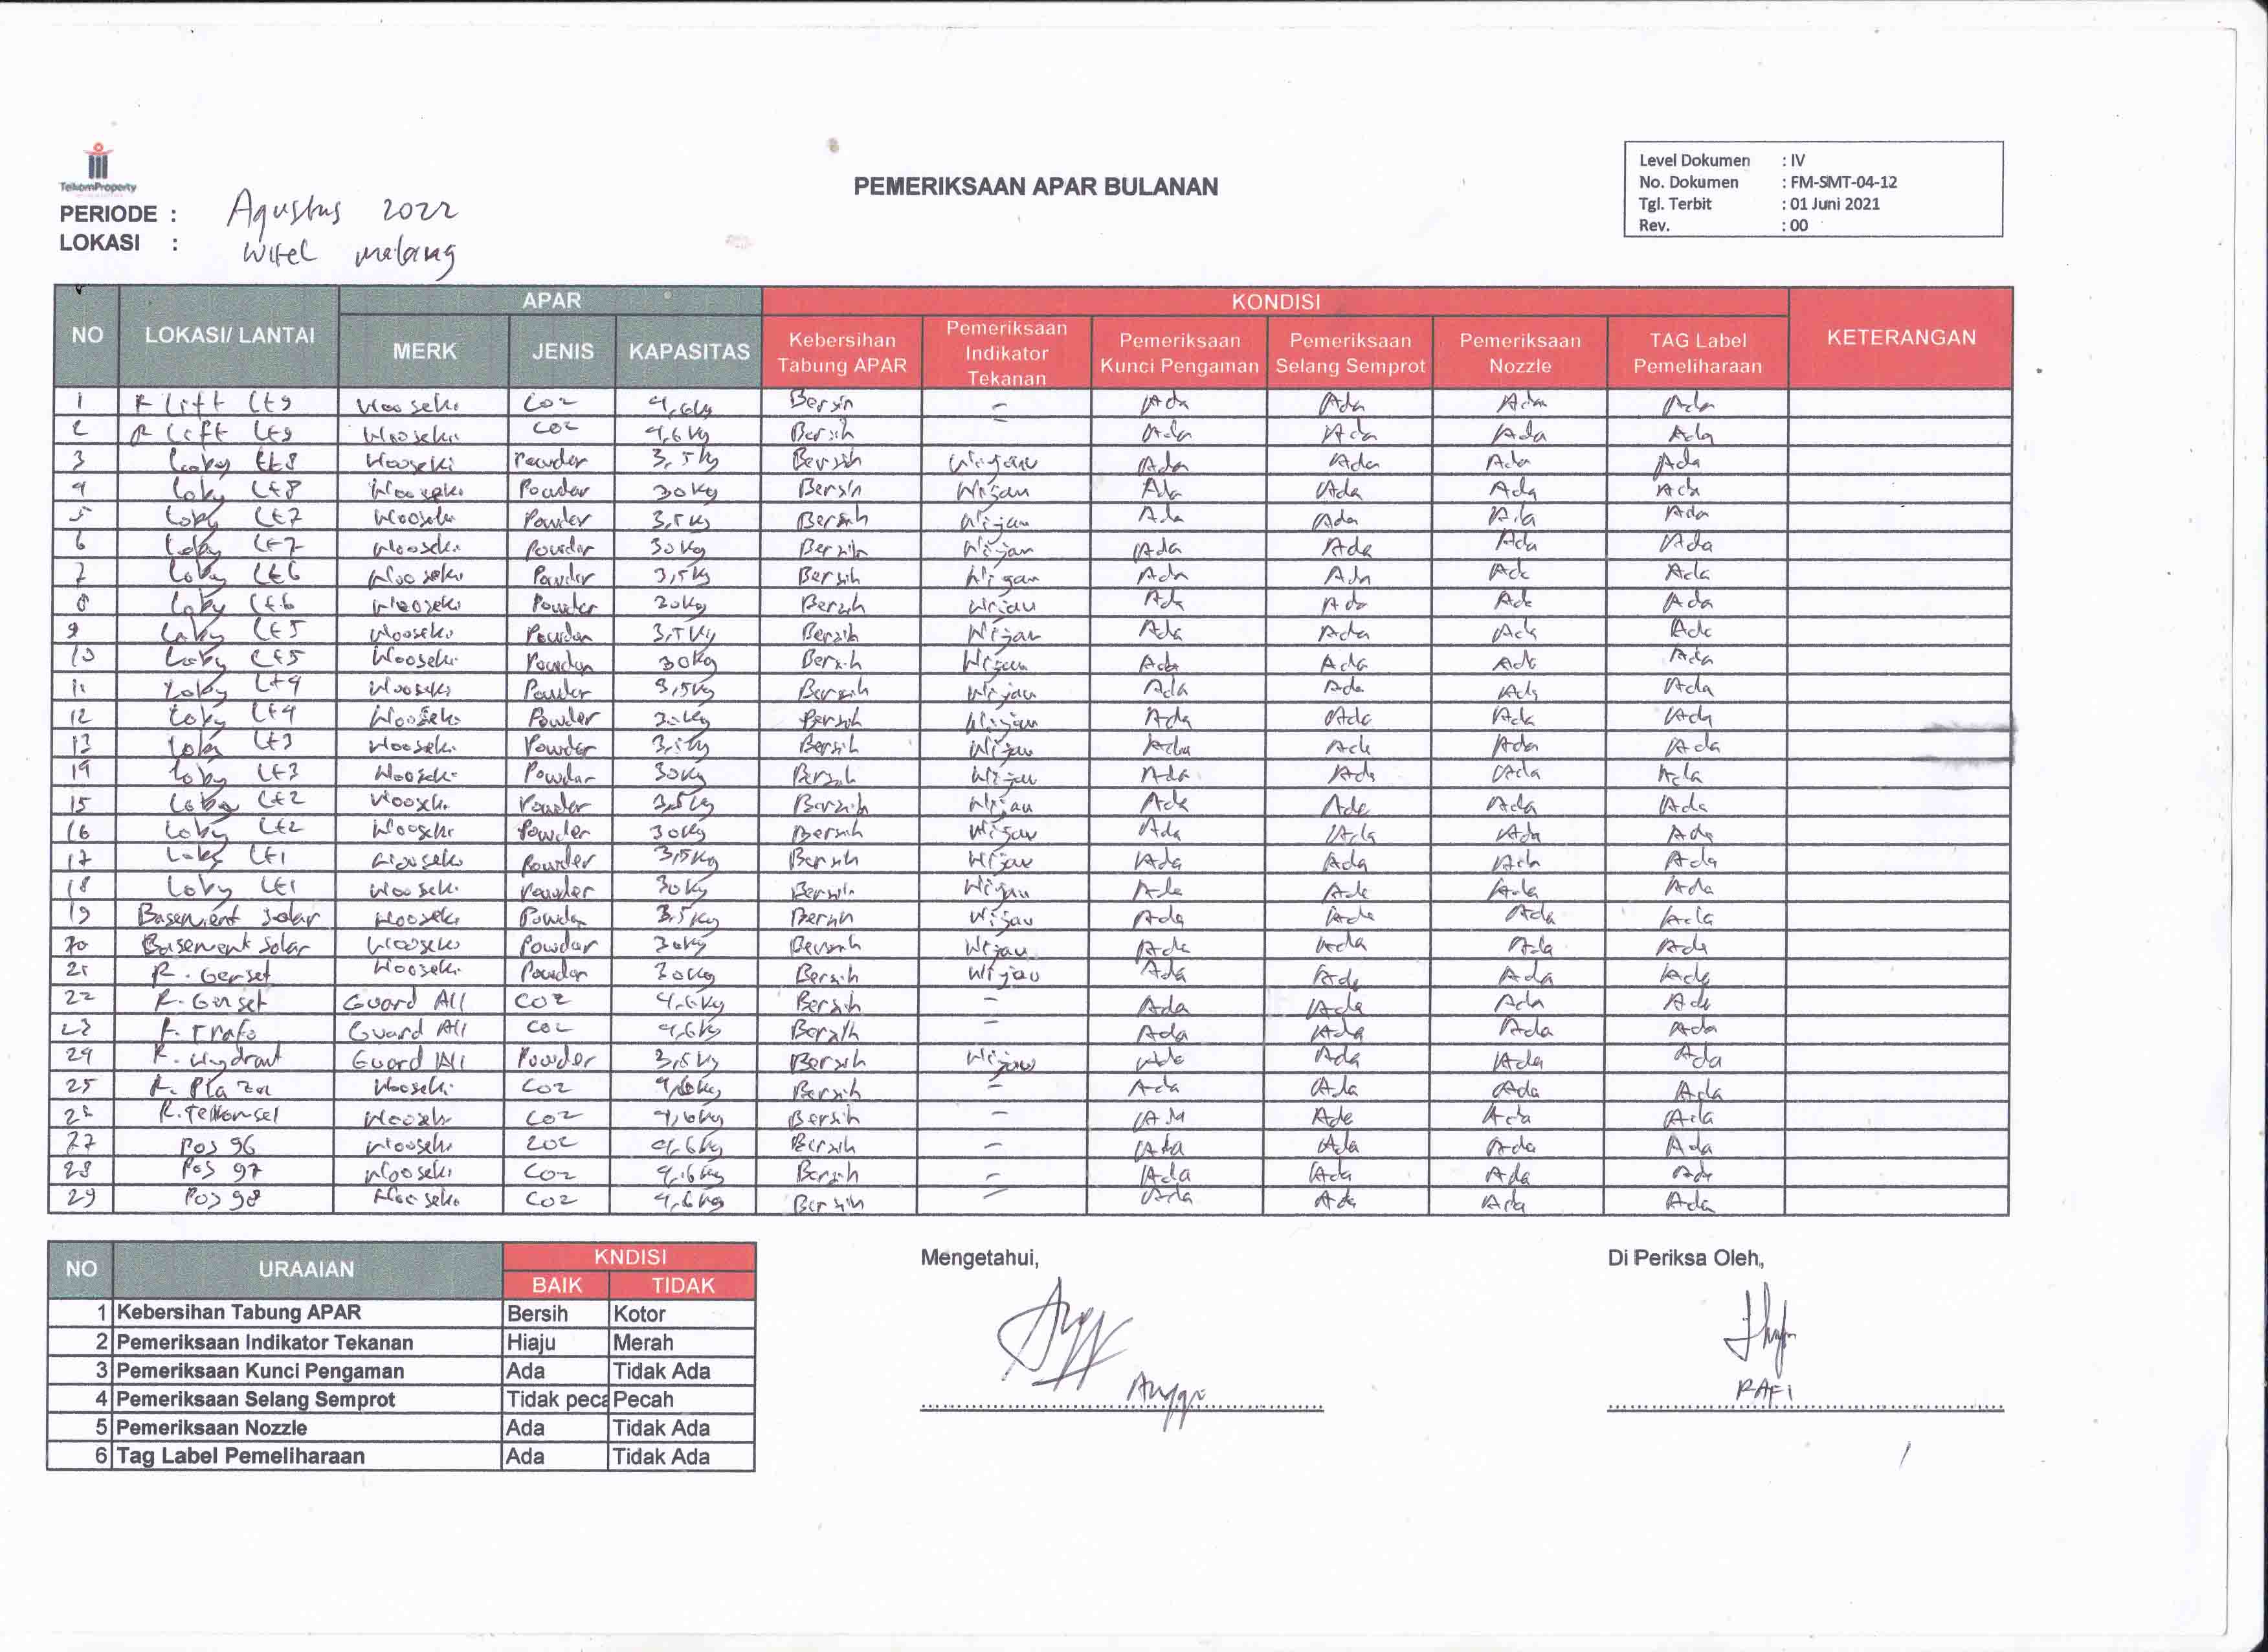 TelkomProperty
PEMERIKSAAN APAR BULANAN
Level Dokumen : IV
No. Dokumen : FM-SMT-04-12
Tgl. Terbit : 01 Juni 2021
Rev. : 00
PERIODE : Agustus 2022
LOKASI : Witel malang
NO LOKASI/ LANTAI APAR KONDISI KETERANGAN
MERK JENIS KAPASITAS Kebersihan Tabung APAR Pemeriksaan Indikator Tekanan Pemeriksaan Kunci Pengaman Pemeriksaan Selang Semprot Pemeriksaan Nozzle TAG Label Pemeliharaan
1 R Lift Lt9 Wooseki CO2 4,6kg Bersih - Ada Ada Ada Ada
2 R Lift Lt9 Wooseki CO2 4,6 kg Bersih - Ada Ada Ada Ada
3 Loby Lt8 Wooseki Powder 3,5kg Bersih Hijau Ada Ada Ada Ada
4 Loby Lt8 Wooseki Powder 30kg Bersih Hijau Ada Ada Ada Ada
5 Loby Lt7 Wooseki Powder 3,5kg Bersih Hijau Ada Ada Ada Ada
6 Loby Lt7 Wooseki Powder 30kg Bersih Hijau Ada Ada Ada Ada
7 Loby Lt6 Wooseki Powder 3,5kg Bersih Hijau Ada Ada Ada Ada
8 Loby Lt6 Wooseki Powder 30kg Bersih Hijau Ada Ada Ada Ada
9 Loby Lt5 Wooseki Powder 3,5kg Bersih Hijau Ada Ada Ada Ada
10 Loby Lt5 Wooseki Powder 30kg Bersih Hijau Ada Ada Ada Ada
11 Loby Lt4 Wooseki Powder 3,5kg Bersih Hijau Ada Ada Ada Ada
12 Loby Lt4 Wooseki Powder 30kg Bersih Hijau Ada Ada Ada Ada
13 Loby Lt3 Wooseki Powder 3,5kg Bersih Hijau Ada Ada Ada Ada
14 Loby Lt3 Wooseki Powder 30kg Bersih Hijau Ada Ada Ada Ada
15 Loby Lt2 Wooseki Powder 3,5kg Bersih Hijau Ada Ada Ada Ada
16 Loby Lt2 Wooseki Powder 30kg Bersih Hijau Ada Ada Ada Ada
17 Loby Lt1 Wooseki Powder 3,5kg Bersih Hijau Ada Ada Ada Ada
18 Loby Lt1 Wooseki Powder 30kg Bersih Hijau Ada Ada Ada Ada
19 Basement solar Wooseki Powder 3,5kg Bersih Hijau Ada Ada Ada Ada
20 Basement solar Wooseki Powder 30kg Bersih Hijau Ada Ada Ada Ada
21 R. Genset Wooseki Powder 30kg Bersih Hijau Ada Ada Ada Ada
22 R. Genset Guard All CO2 4,6kg Bersih - Ada Ada Ada Ada
23 R. Trafo Guard All CO2 4,6kg Bersih - Ada Ada Ada Ada
24 R. Hydrant Guard All Powder 3,5kg Bersih Hijau Ada Ada Ada Ada
25 R. Plaza Wooseki CO2 4,6kg Bersih - Ada Ada Ada Ada
26 R. Telkomsel Wooseki CO2 4,6kg Bersih - Ada Ada Ada Ada
27 Pos 96 Wooseki CO2 4,6kg Bersih - Ada Ada Ada Ada
28 Pos 97 Wooseki CO2 4,6kg Bersih - Ada Ada Ada Ada
29 Pos 98 Wooseki CO2 4,6kg Bersih - Ada Ada Ada Ada
NO URAAIAN KNDISI
BAIK TIDAK
1 Kebersihan Tabung APAR Bersih Kotor
2 Pemeriksaan Indikator Tekanan Hiaju Merah
3 Pemeriksaan Kunci Pengaman Ada Tidak Ada
4 Pemeriksaan Selang Semprot Tidak peca Pecah
5 Pemeriksaan Nozzle Ada Tidak Ada
6 Tag Label Pemeliharaan Ada Tidak Ada
Mengetahui,
Anggi
Di Periksa Oleh,
RAFI